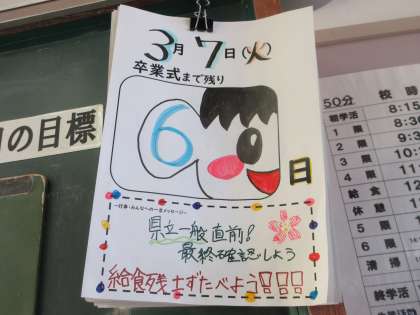 3月7日(火)
卒業式まで残り
6
日
一行書:みんなへの一言メッセージ
県立一般直前!
最終確認しよう
給食残さずたべよう!!!
の目標
50分 校時
朝学活 8:1
1 限 8:30
2 限 9:
3 限 10:
4 限 11:
給 食
休 憩
5 限
6 限
清 掃
終学活